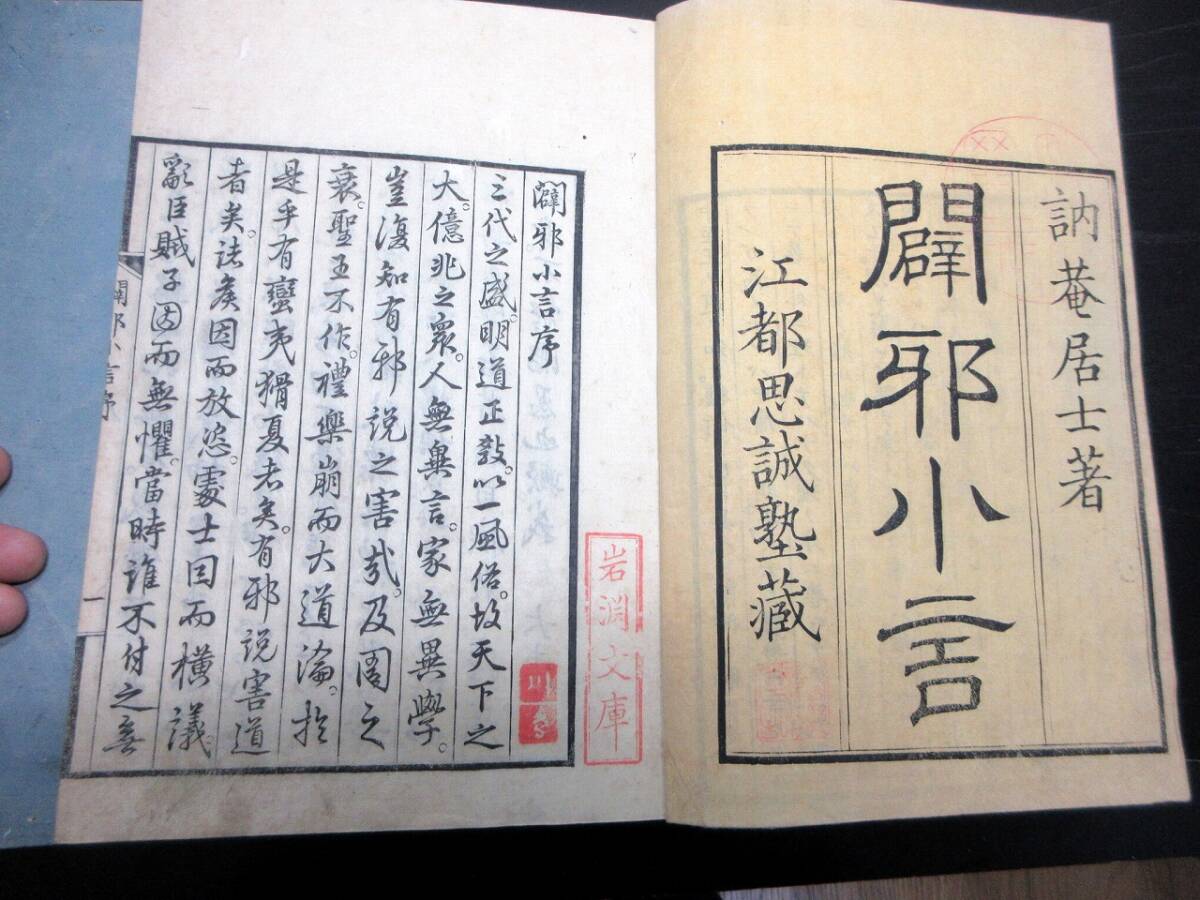 訥菴居士著
闢邪小言
江都思誠塾藏
闢邪小言序
三代之盛。明道正教。以一風俗。故天下之
大。億兆之衆。人無異言。家無異學。
豈復知有邪說之害哉。及周之
衰。聖王不作。禮樂崩而大道淪。於
是乎有蠻夷猾夏者矣。有邪說害道
者矣。諸矦因而放恣。處士因而橫議。
亂臣賊子因而無懼。當時誰不付之無
岩淵文庫
闢邪小言序
一